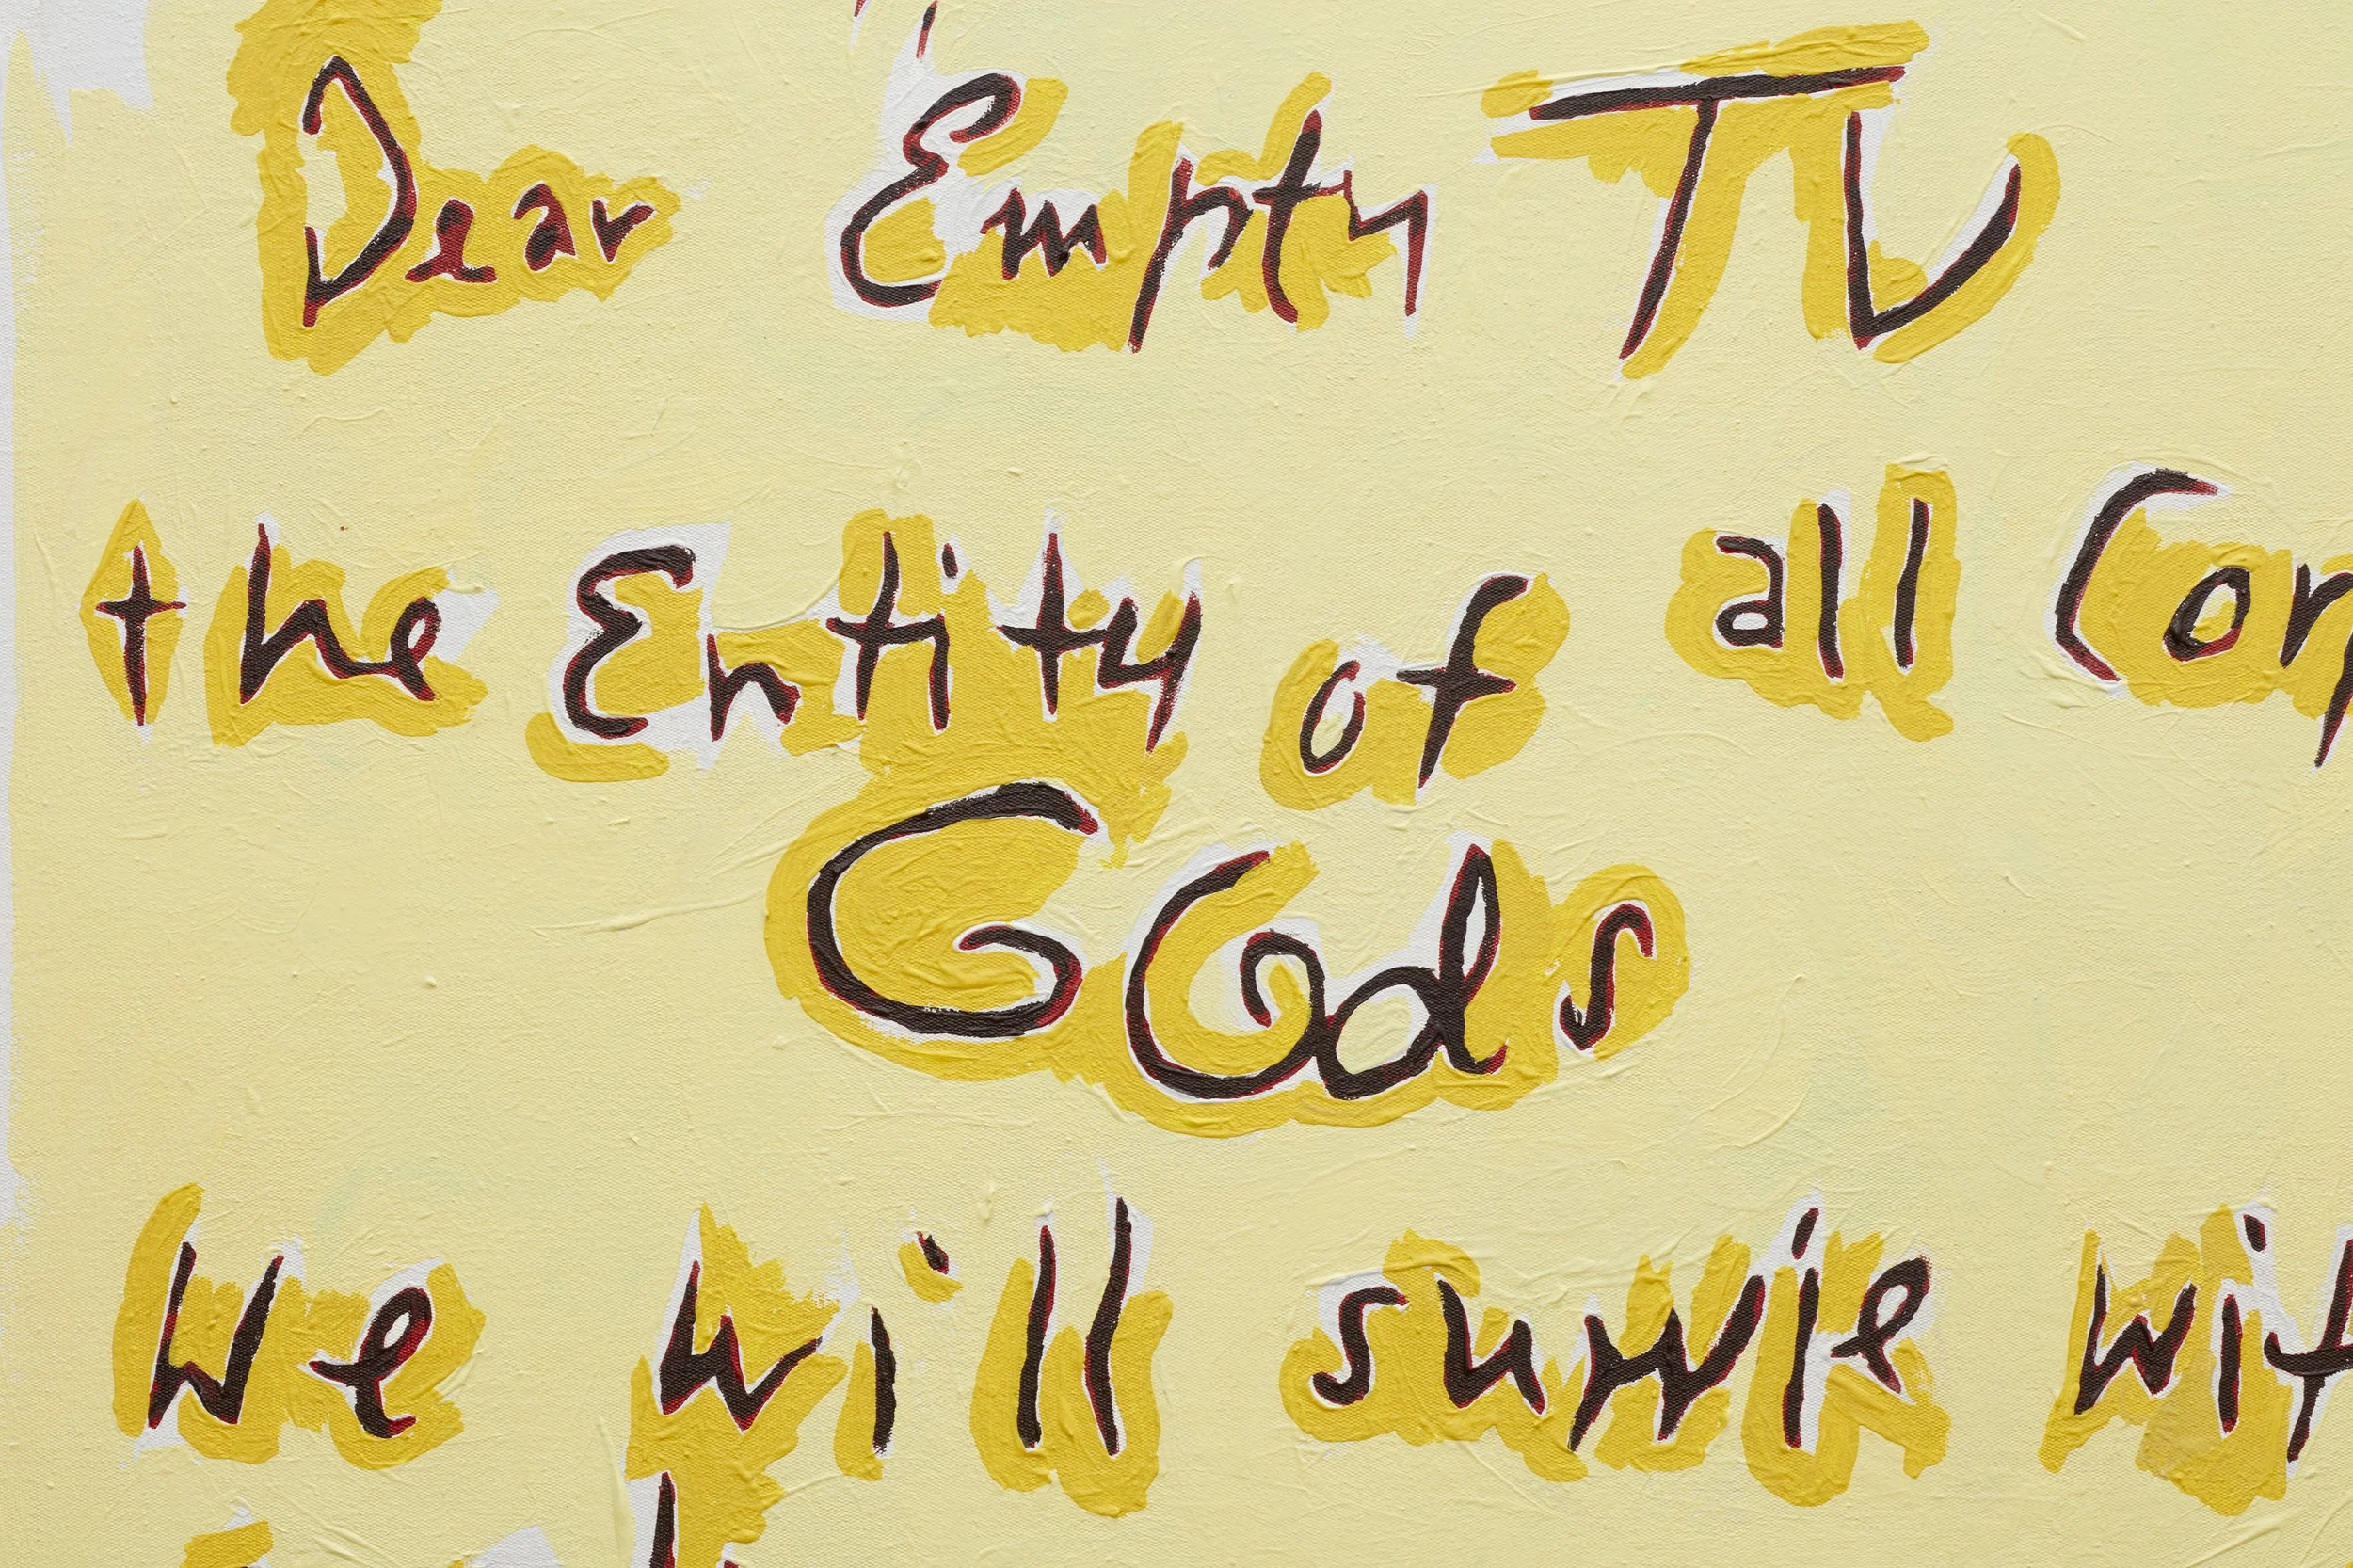 Dear Empty TV
the Entity of all
Gods
We will survie